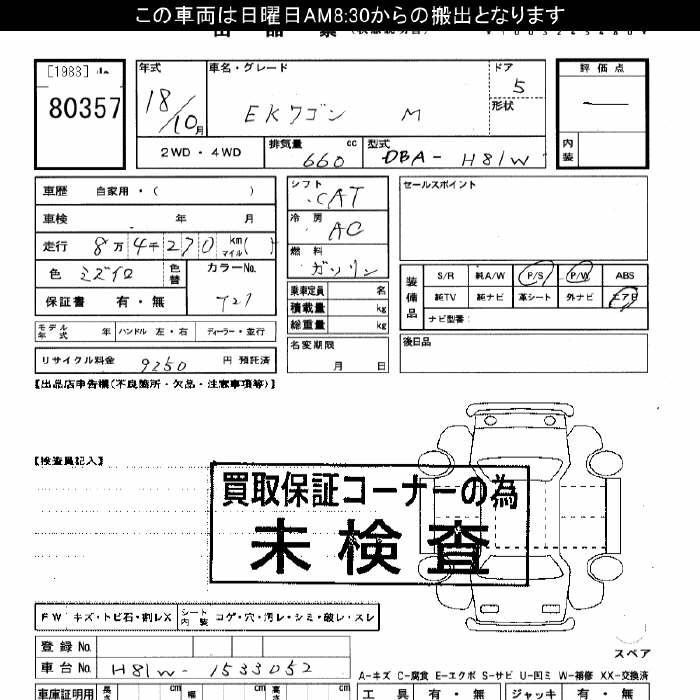 この車両は日曜日AM8:30からの搬出となります
[1983]
80357
年式 車名・グレード ドア 評価点
18/10月 EKワゴン M 5
形状
2WD・4WD 排気量 660 cc 型式 DBA-H81W 内装
車歴 自家用・( )
車検 年 月
走行 8万4千270 km マイル( )
色 ミズイロ 色替 カラーNo. T27
保証書 有・無
シフト CAT
冷房 AC
燃料 ガソリン
乗車定員 名
積載量 kg
総重量 kg
セールスポイント
装備品 S/R 純A/W P/S P/W ABS
純TV 純ナビ 革シート 外ナビ エアB
ナビ型番:
モデル年式 年 ハンドル 左・右 ディーラー・並行
名変期限 月 日
後日品
リサイクル料金 9250 円 預託済
【出品店申告欄(不良箇所・欠品・注意事項等)】
【検査員記入】
買取保証コーナーの為
未検査
FW キズ・トビ石・割レX シート内装 コゲ・穴・汚レ・シミ・破レ・スレ
登録No.
車台No. H81W-1533052
スペア
A-キズ C-腐食 E-エクボ S-サビ U-凹ミ W-補修 XX-交換済
車庫証明用 長さ cm 幅 cm 高さ cm 工具 有・無 ジャッキ 有・無